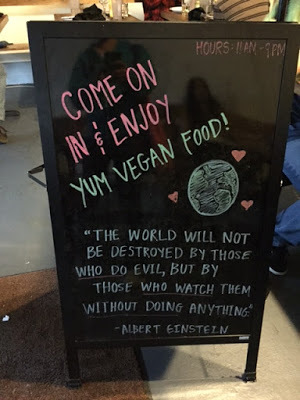 HOURS-11AM-9PM
COME ON
IN & ENJOY
YUM VEGAN FOOD!
"THE WORLD WILL NOT
BE DESTROYED BY THOSE
WHO DO EVIL, BUT BY
THOSE WHO WATCH THEM
WITHOUT DOING ANYTHING."
-ALBERT EINSTEIN